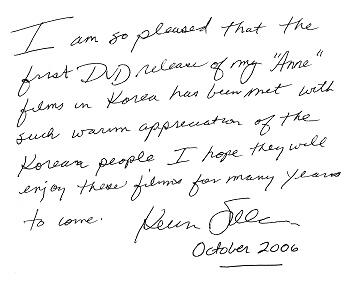 I am so pleased that the
first DVD release of my "Anne"
films in Korea has been met with
such warm appreciation of the
Korean people I hope they will
enjoy these films for many years
to come.
October 2006